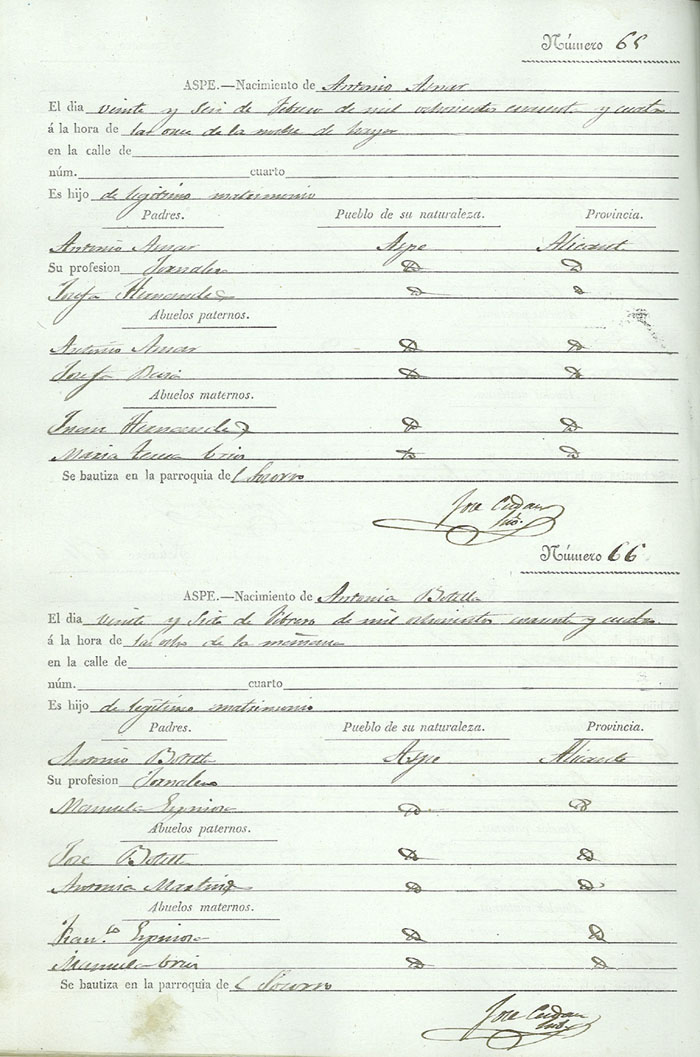 Número 65
ASPE.—Nacimiento de Antonio Asnar
El dia veinte y seis de Febrero de mil ochocientos cuarenta y cuatro
á la hora de las once de la noche de hayer
en la calle de
núm. cuarto
Es hijo de legitimo matrimonio
Padres. Pueblo de su naturaleza. Provincia.
Antonio Asnar Aspe Alicant
Su profesion Jornalero
Josefa Hernandez
Abuelos paternos.
Antonio Asnar
Josefa
Abuelos maternos.
Juan Hernandez
Maria Teresa
Se bautiza en la parroquia del Socorro
Jose
Número 66
ASPE.—Nacimiento de Antonia Botella
El dia veinte y siete de Febrero de mil ochocientos cuarenta y cuatro
á la hora de las ocho de la mañana
en la calle de
núm. cuarto
Es hijo de legitimo matrimonio
Padres. Pueblo de su naturaleza. Provincia.
Antonio Botella Aspe Alicante
Su profesion Jornalero
Manuela Espinosa
Abuelos paternos.
Jose Botella
Antonia Martinez
Abuelos maternos.
Fran.co Espinosa
Manuela
Se bautiza en la parroquia de l Socorro
Jose